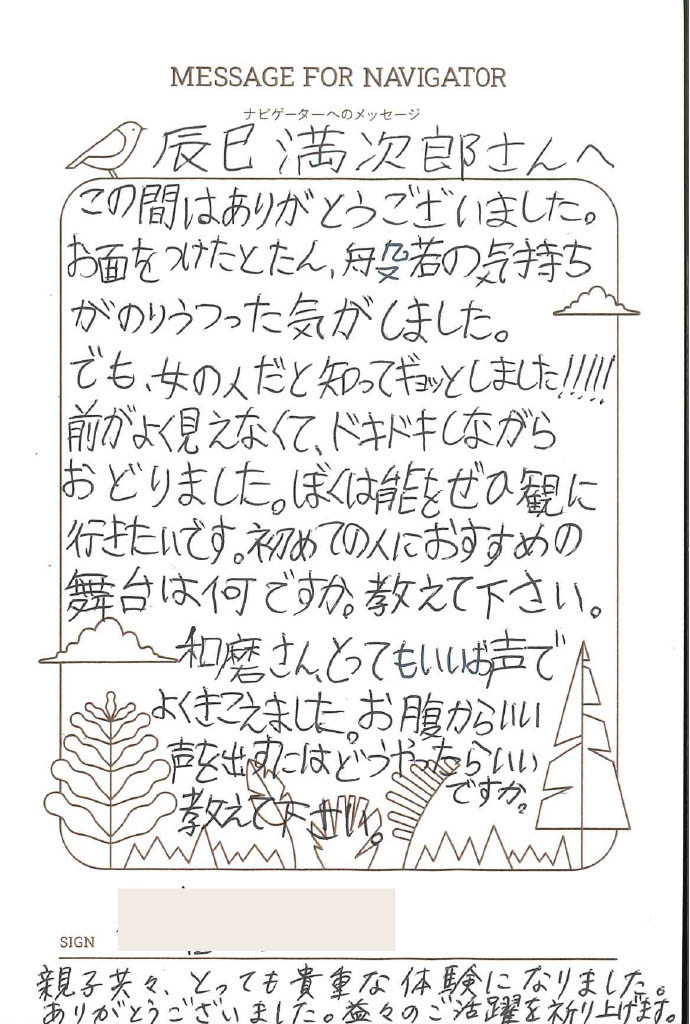 MESSAGE FOR NAVIGATOR
ナビゲーターへのメッセージ
辰巳 満次郎さんへ
この間はありがとうございました。
お面をつけたとたん、般若の気持ち
がのりうつった気がしました。
でも、女の人だと知ってギョッとしました!!!!!
前がよく見えなくて、ドキドキしながら
おどりました。ぼくは能をぜひ観に
行きたいです。初めての人におすすめの
舞台は何ですか。教えて下さい。
和磨さん、とってもいいお声で
よくきこえました。お腹からいい
声を出すにはどうやったらいい
ですか。
教えて下さい。
SIGN
親子共々、とっても貴重な体験になりました。
ありがとうございました。益々のご活躍を祈り上げます。